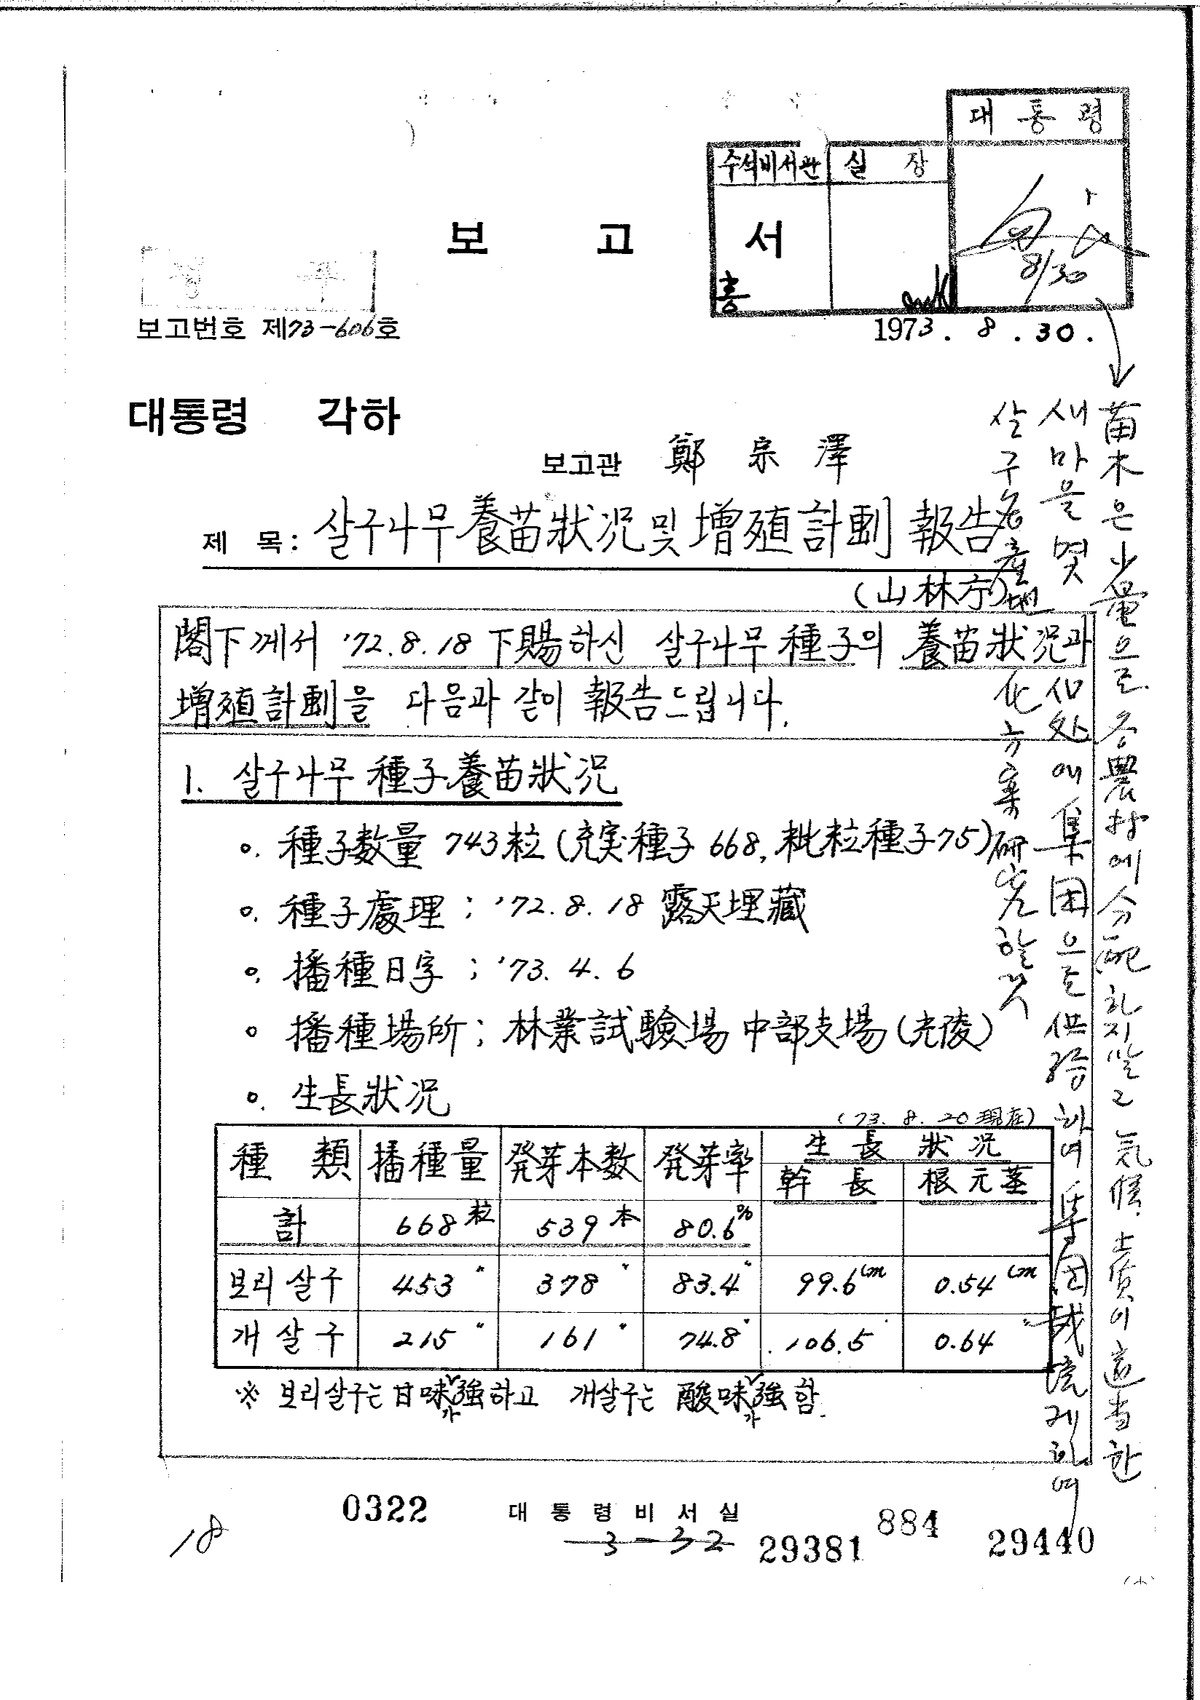 대 통 령
수석비서관 실 장
보 고 서
8/30
보고번호 제73-606호
1973. 8. 30.
대통령 각하
보고관 鄭 宗 澤
제 목: 살구나무 養苗狀况 및 增殖計劃 報告
(山林庁)
閣下께서 '72.8.18 下賜하신 살구나무 種子의 養苗狀况과
增殖計劃을 다음과 같이 報告드립니다.
1. 살구나무 種子養苗狀况
o. 種子数量 743粒 (充実種子 668, 粃粒種子 75)
o. 種子處理 ; '72.8.18 露天埋藏
o. 播種日字 ; '73.4.6
o 播種場所 ; 林業試験場 中部支場 (光陵)
o. 生長狀况
(73. 8. 20 現在)
種 類 播種量 発芽本数 発芽率 生長狀况
幹 長 根元莖
計 668粒 539本 80.6%
보리살구 453〃 378〃 83.4〃 99.6cm 0.54cm
개살구 215〃 161〃 74.8〃 106.5〃 0.64〃
※ 보리살구는 甘味가 強하고 개살구는 酸味가 強함.
苗木은 少量으로 各農村에 分配하지말고 気候, 土質이 適当한
새마을 몇 個처에 集団으로 供給하여 集団栽培케하여
살구名産地化方案 研究할 것
0322 대통령비서실 884
18 3-32 29381 29440